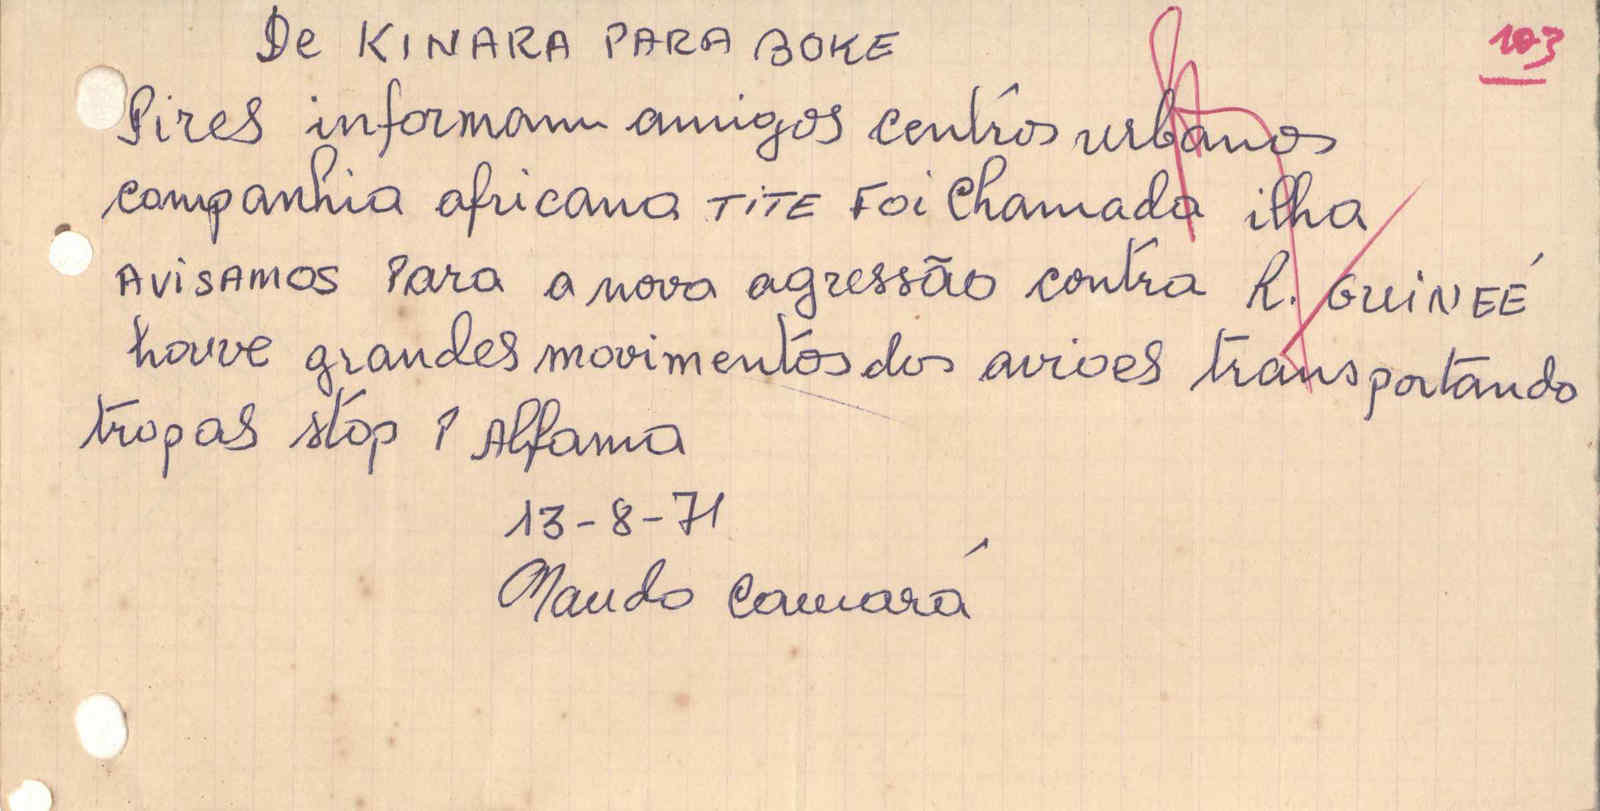 De KINARA PARA BOKE
103
Pires informam amigos centros urbanos
companhia africana TiTE Foi Chamada ilha
AViSAMOS Para a nova agressão contra R. GUiNEÉ
houve grandes movimentos dos avioes transportando
tropas stop P Alfama
13-8-71
Mando Camará